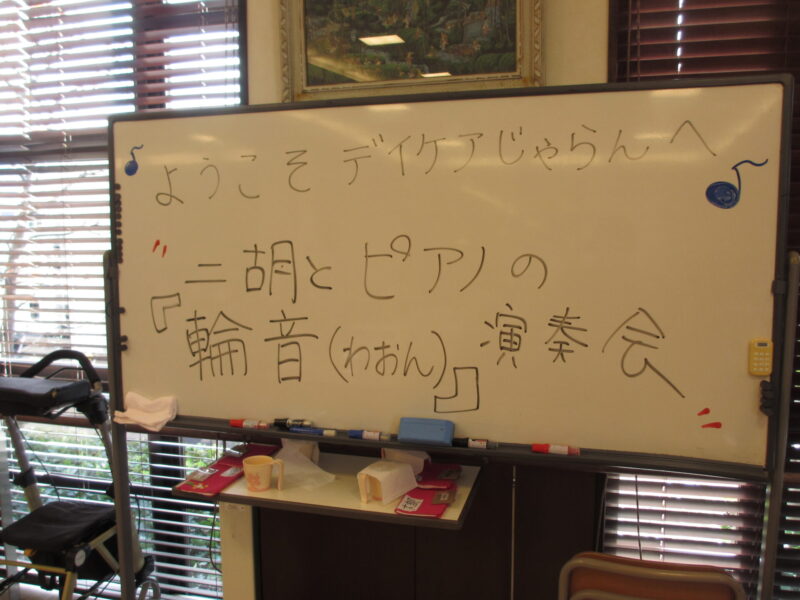 ようこそ デイケアじゃらんへ
二胡とピアノの
『輪音(わおん)』演奏会